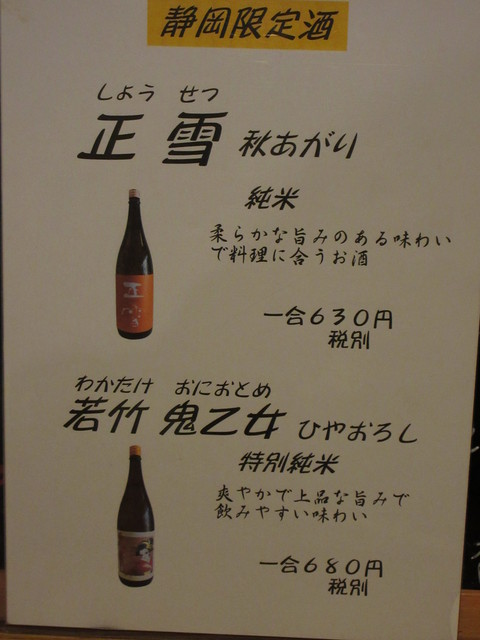 静岡限定酒
しよう せつ
正 雪 秋あがり
純米
柔らかな旨みのある味わい
で料理に合うお酒
一合630円
税別
わかたけ おにおとめ
若竹 鬼乙女 ひやおろし
特別純米
爽やかで上品な旨みで
飲みやすい味わい
一合680円
税別